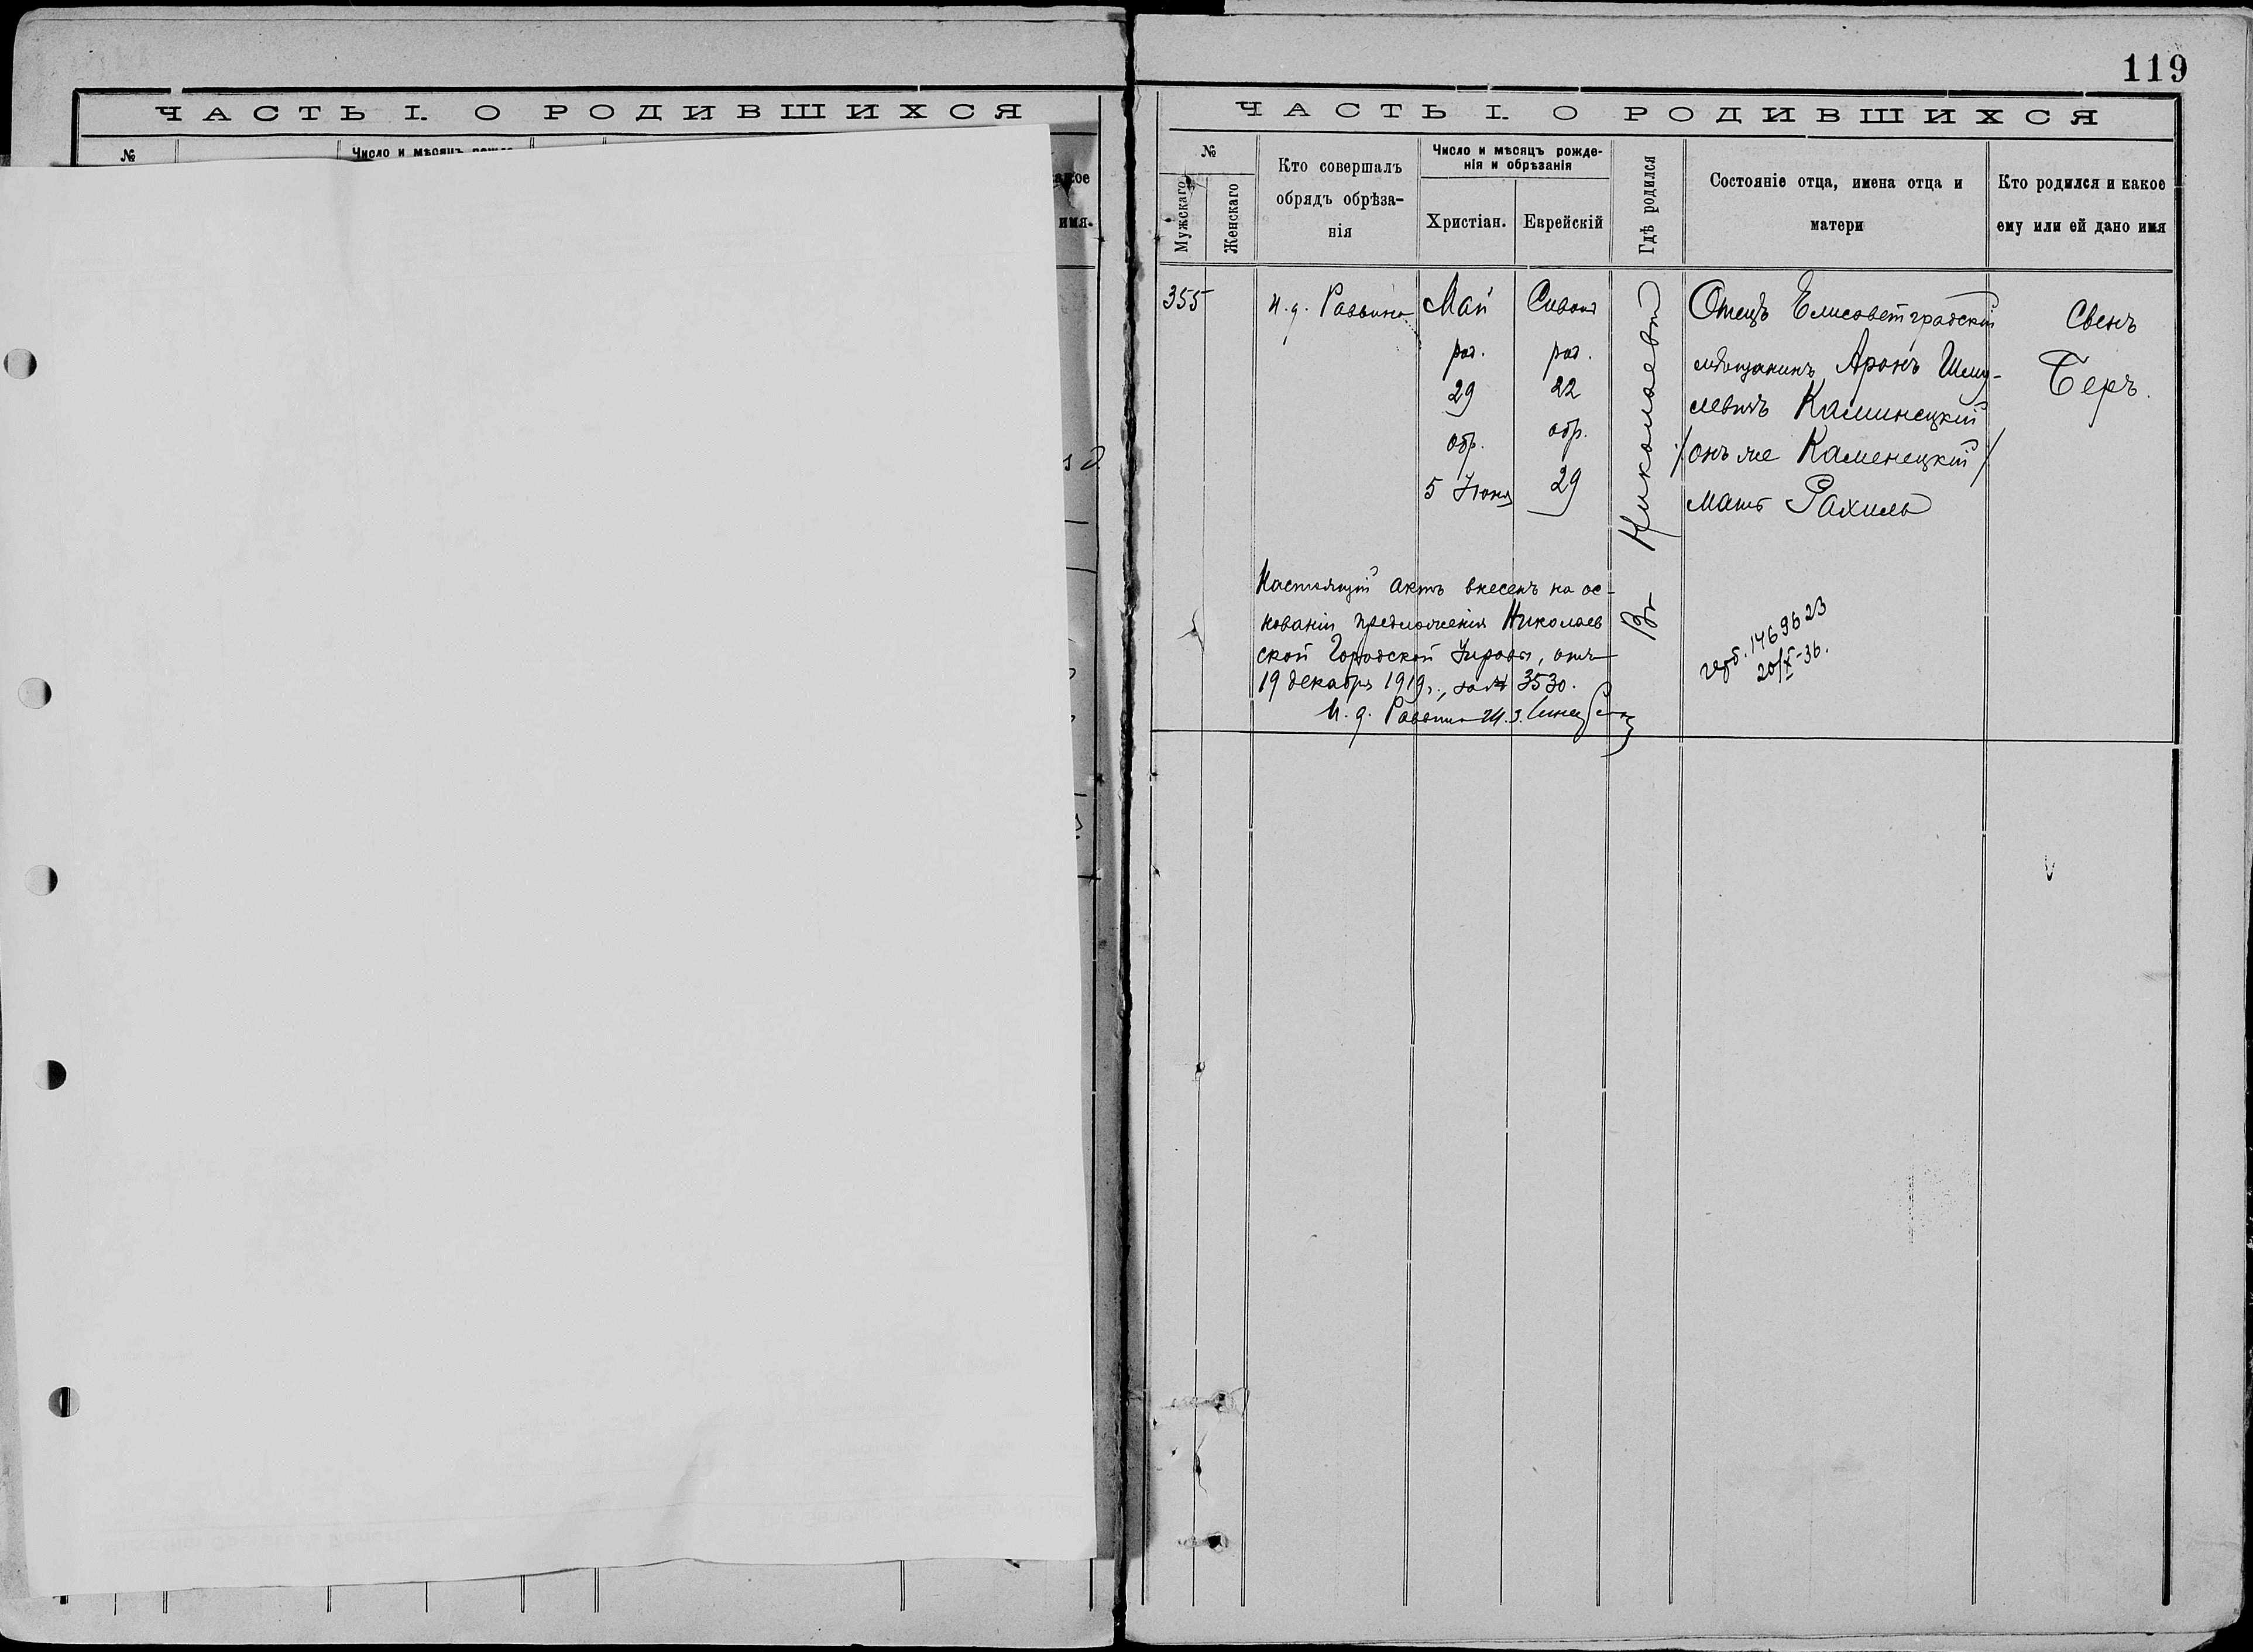 119
ЧАСТЬ I. О РОДИВШИХСЯ
№
Число и мѣсяцъ рожде
акое
имя.
ЧАСТЬ I. О РОДИВШИХСЯ
№
Мужскаго
Женскаго
Кто совершалъ
обрядъ обрѣза-
нія
Число и мѣсяцъ рожде-
нія и обрѣзанія
Христіан.
Еврейскій
Гдѣ родился
Состояніе отца, имена отца и
матери
Кто родился и какое
ему или ей дано имя
355
И. д. Раввина
Май
род.
29
обр.
5 Июня
Сивонъ
род.
22
обр.
29
Въ Николаевѣ
Отецъ Елисаветградскій
мѣщанинъ Аронъ Шму-
левичъ Каминецкій
/онъ же Каменецкій/
мать Рахиль
Свенъ
Беръ.
Настоящій актъ внесенъ на ос-
нованіи предложенія Николаев
ской Городской Управы, отъ
19 декабря 1919 г., за № 3530.
И. д. Раввина
герб. 1469623
20/X-36.